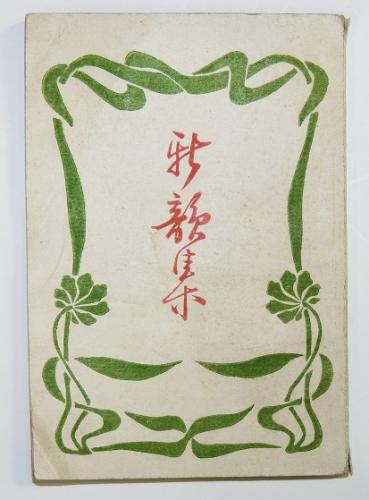 新韻集